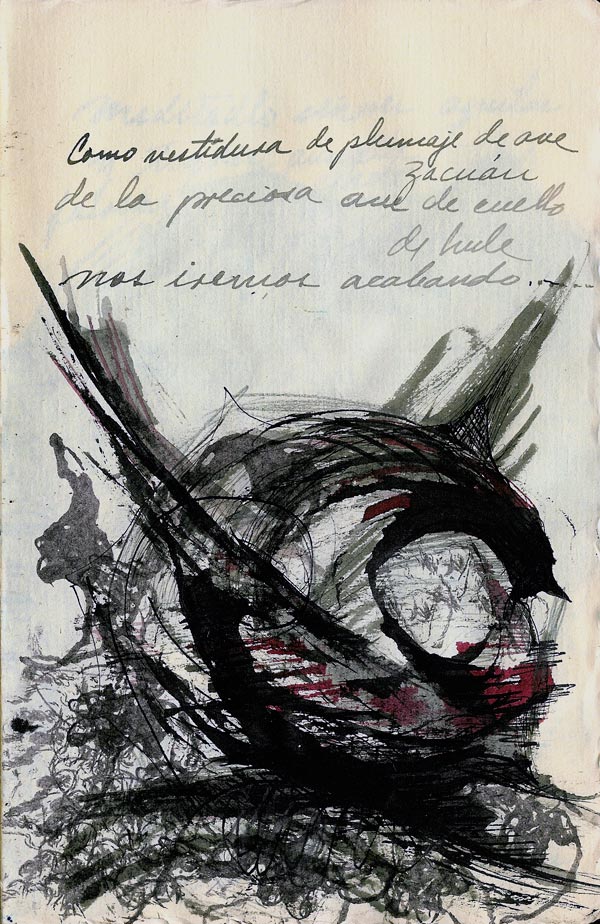 Como vestidura de plumaje de ave
zacuán
de la preciosa ave de cuello
de hule
nos iremos acabando.....